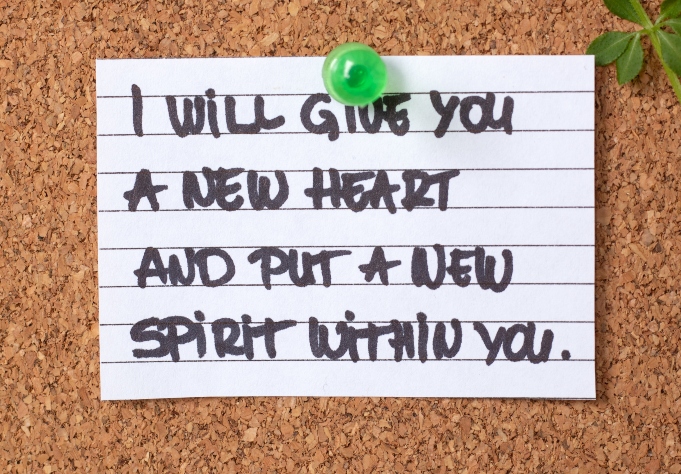 I WILL GIVE YOU
A NEW HEART
AND PUT A NEW
SPIRIT WITHIN YOU.